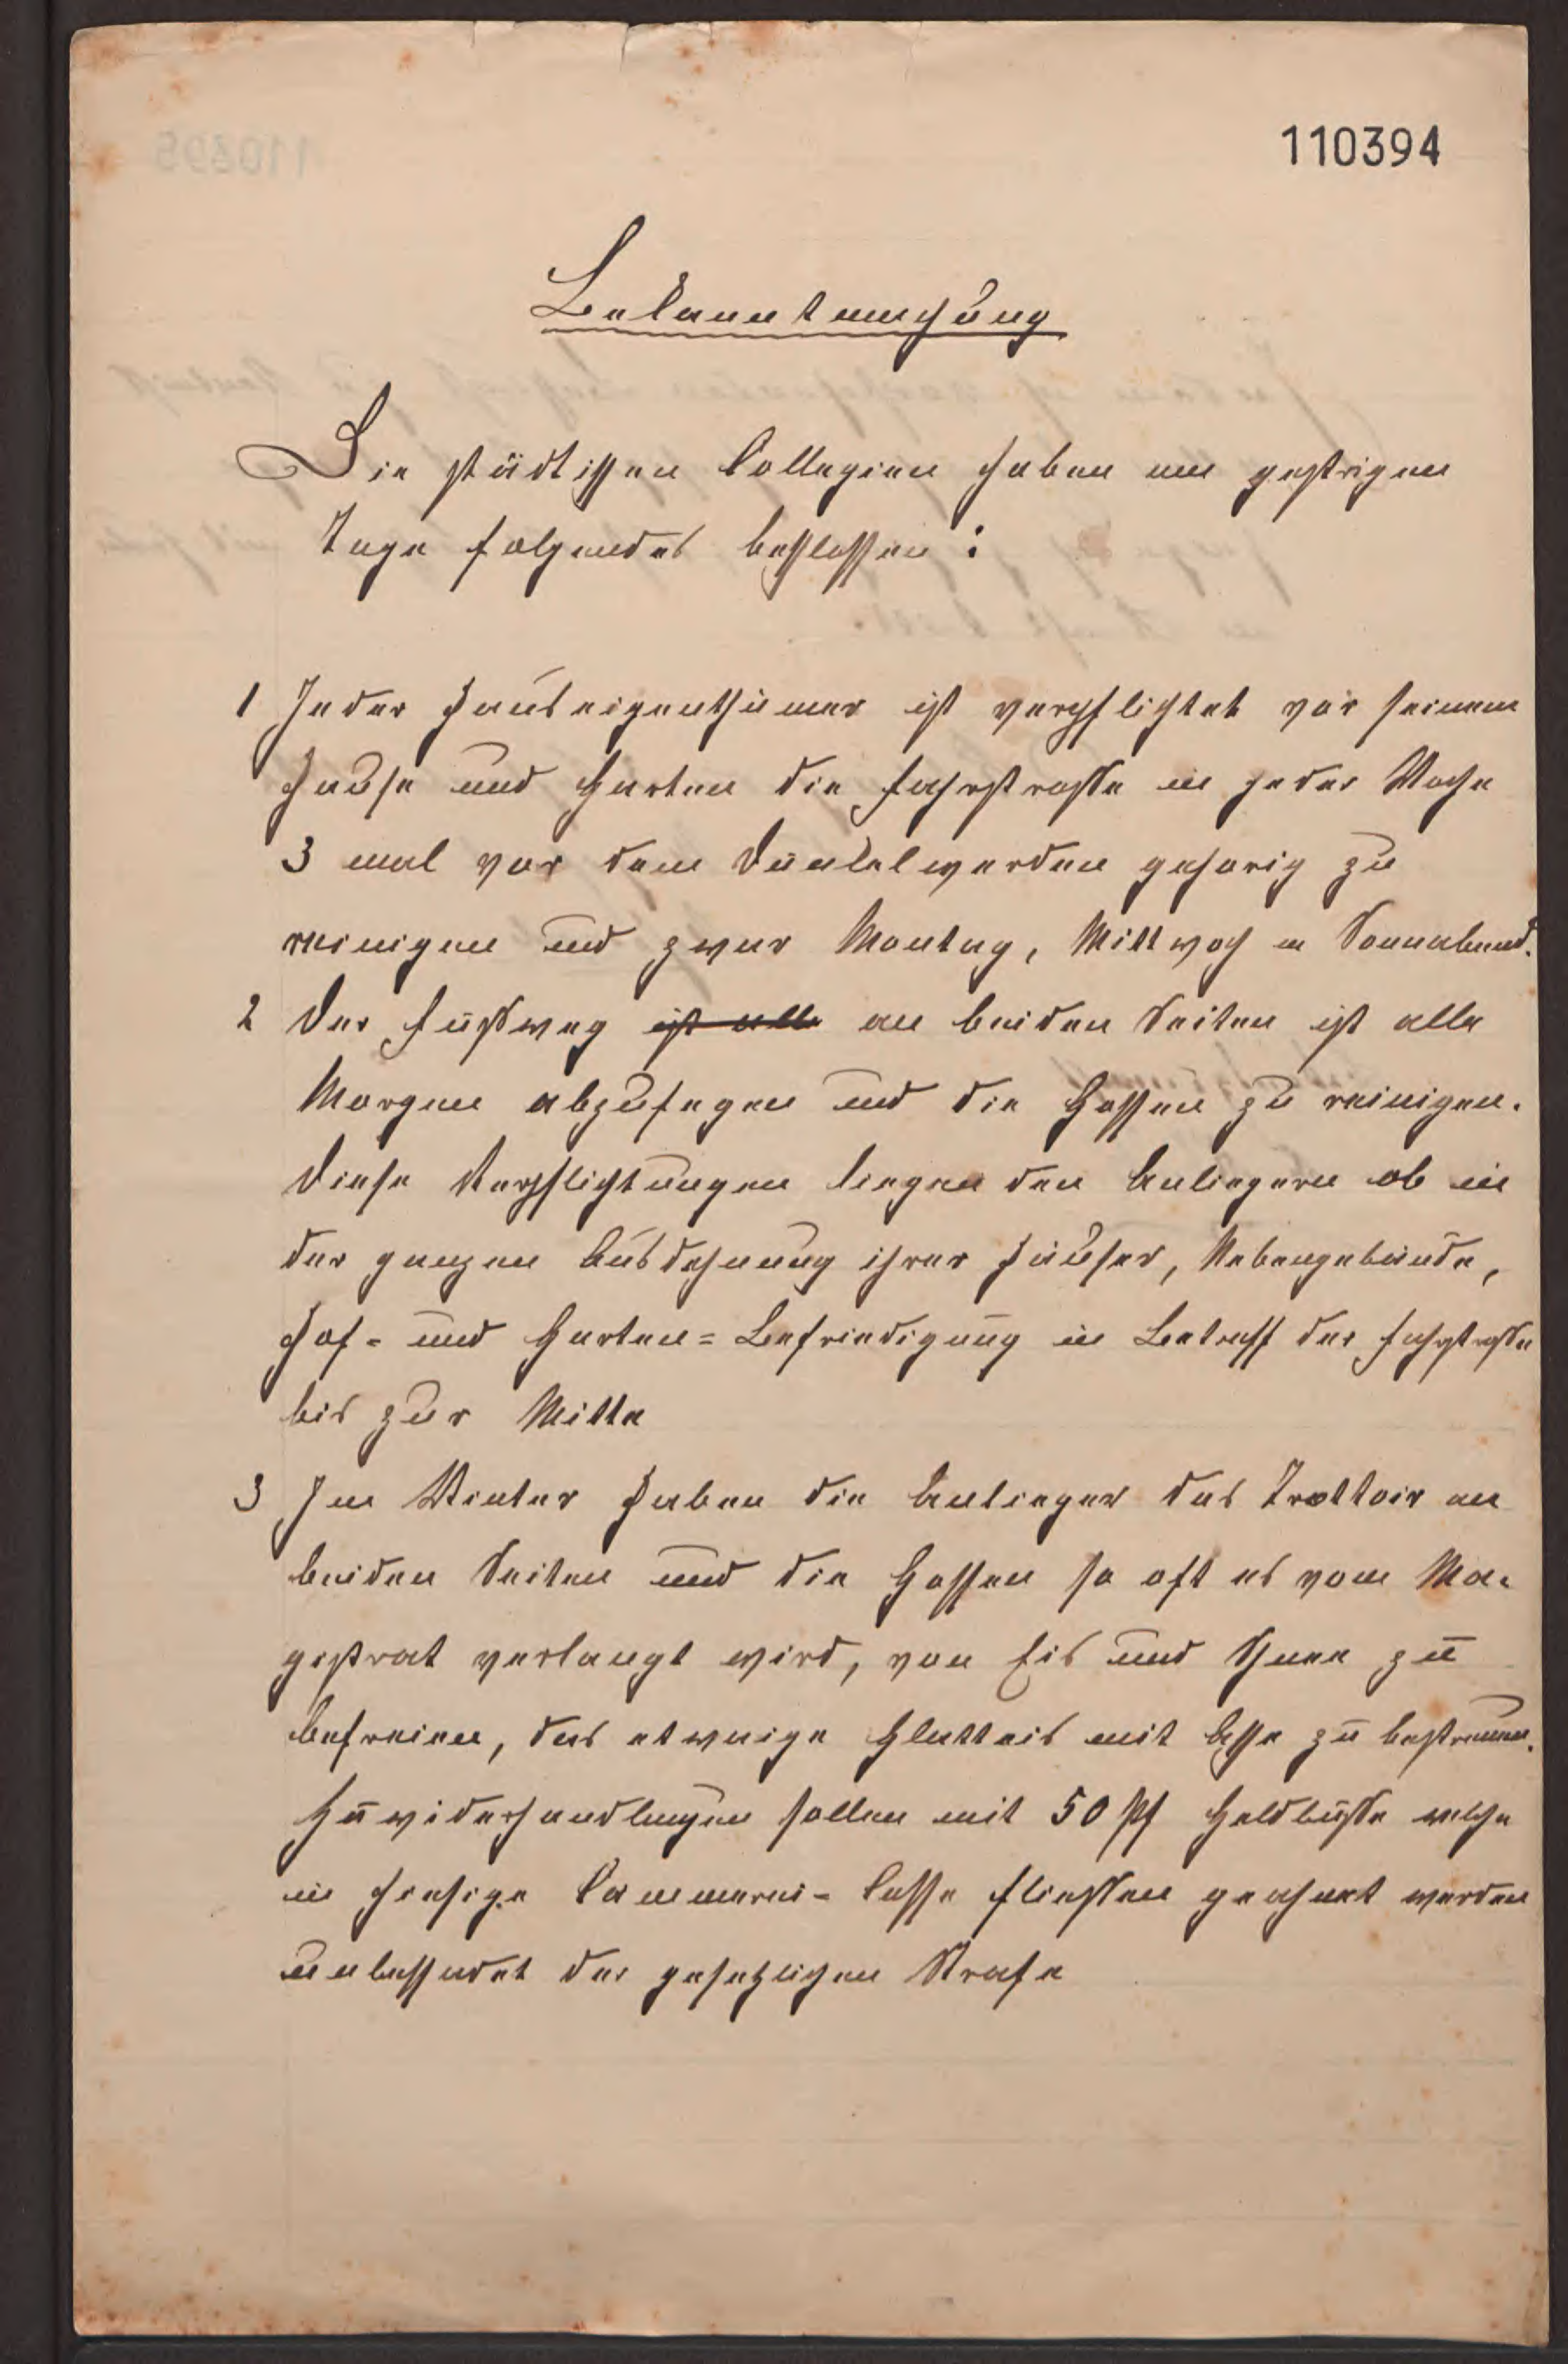 110394
Bekanntmachung
Die städtischen Collegien haben am gestrigen
Tage folgendes beschlossen:
1 Jeder Hauseigenthümer ist verpflichtet vor seinem
Hause und Garten die Fahrstrasse in jeder Woche
3 mal vor dem Dunkelwerden gehorig zu
reinigen und zwar Montag, Mittwoch u Sonnabend.
2 Der Fußweg ist alle an beiden Seiten ist alle
Morgen abzufegen und die Gossen zu reinigen.
Diese Verpflichtungen liegen den Anliegern ob in
der ganzen Ausdehnung ihrer Häuser, Nebengebäude,
Hof- und Garten-Befriedigung in Betreff der Fahrstrasse
bis zur Mitte
3 Im Winter haben die Anlieger das Trottoir an
beiden Seiten und die Gossen so oft es vom Ma-
gistrat verlangt wird, von Eis und Schnee zu
befreien, das etwaige Glatteis mit Asche zu bestreuen.
Zuwiderhandlungen sollen mit 50 Pf Geldbuße welche
in hiesige Cämmerei-Casse fliessen geahnt werden
unbeschadet der gesetzlichen Strafe